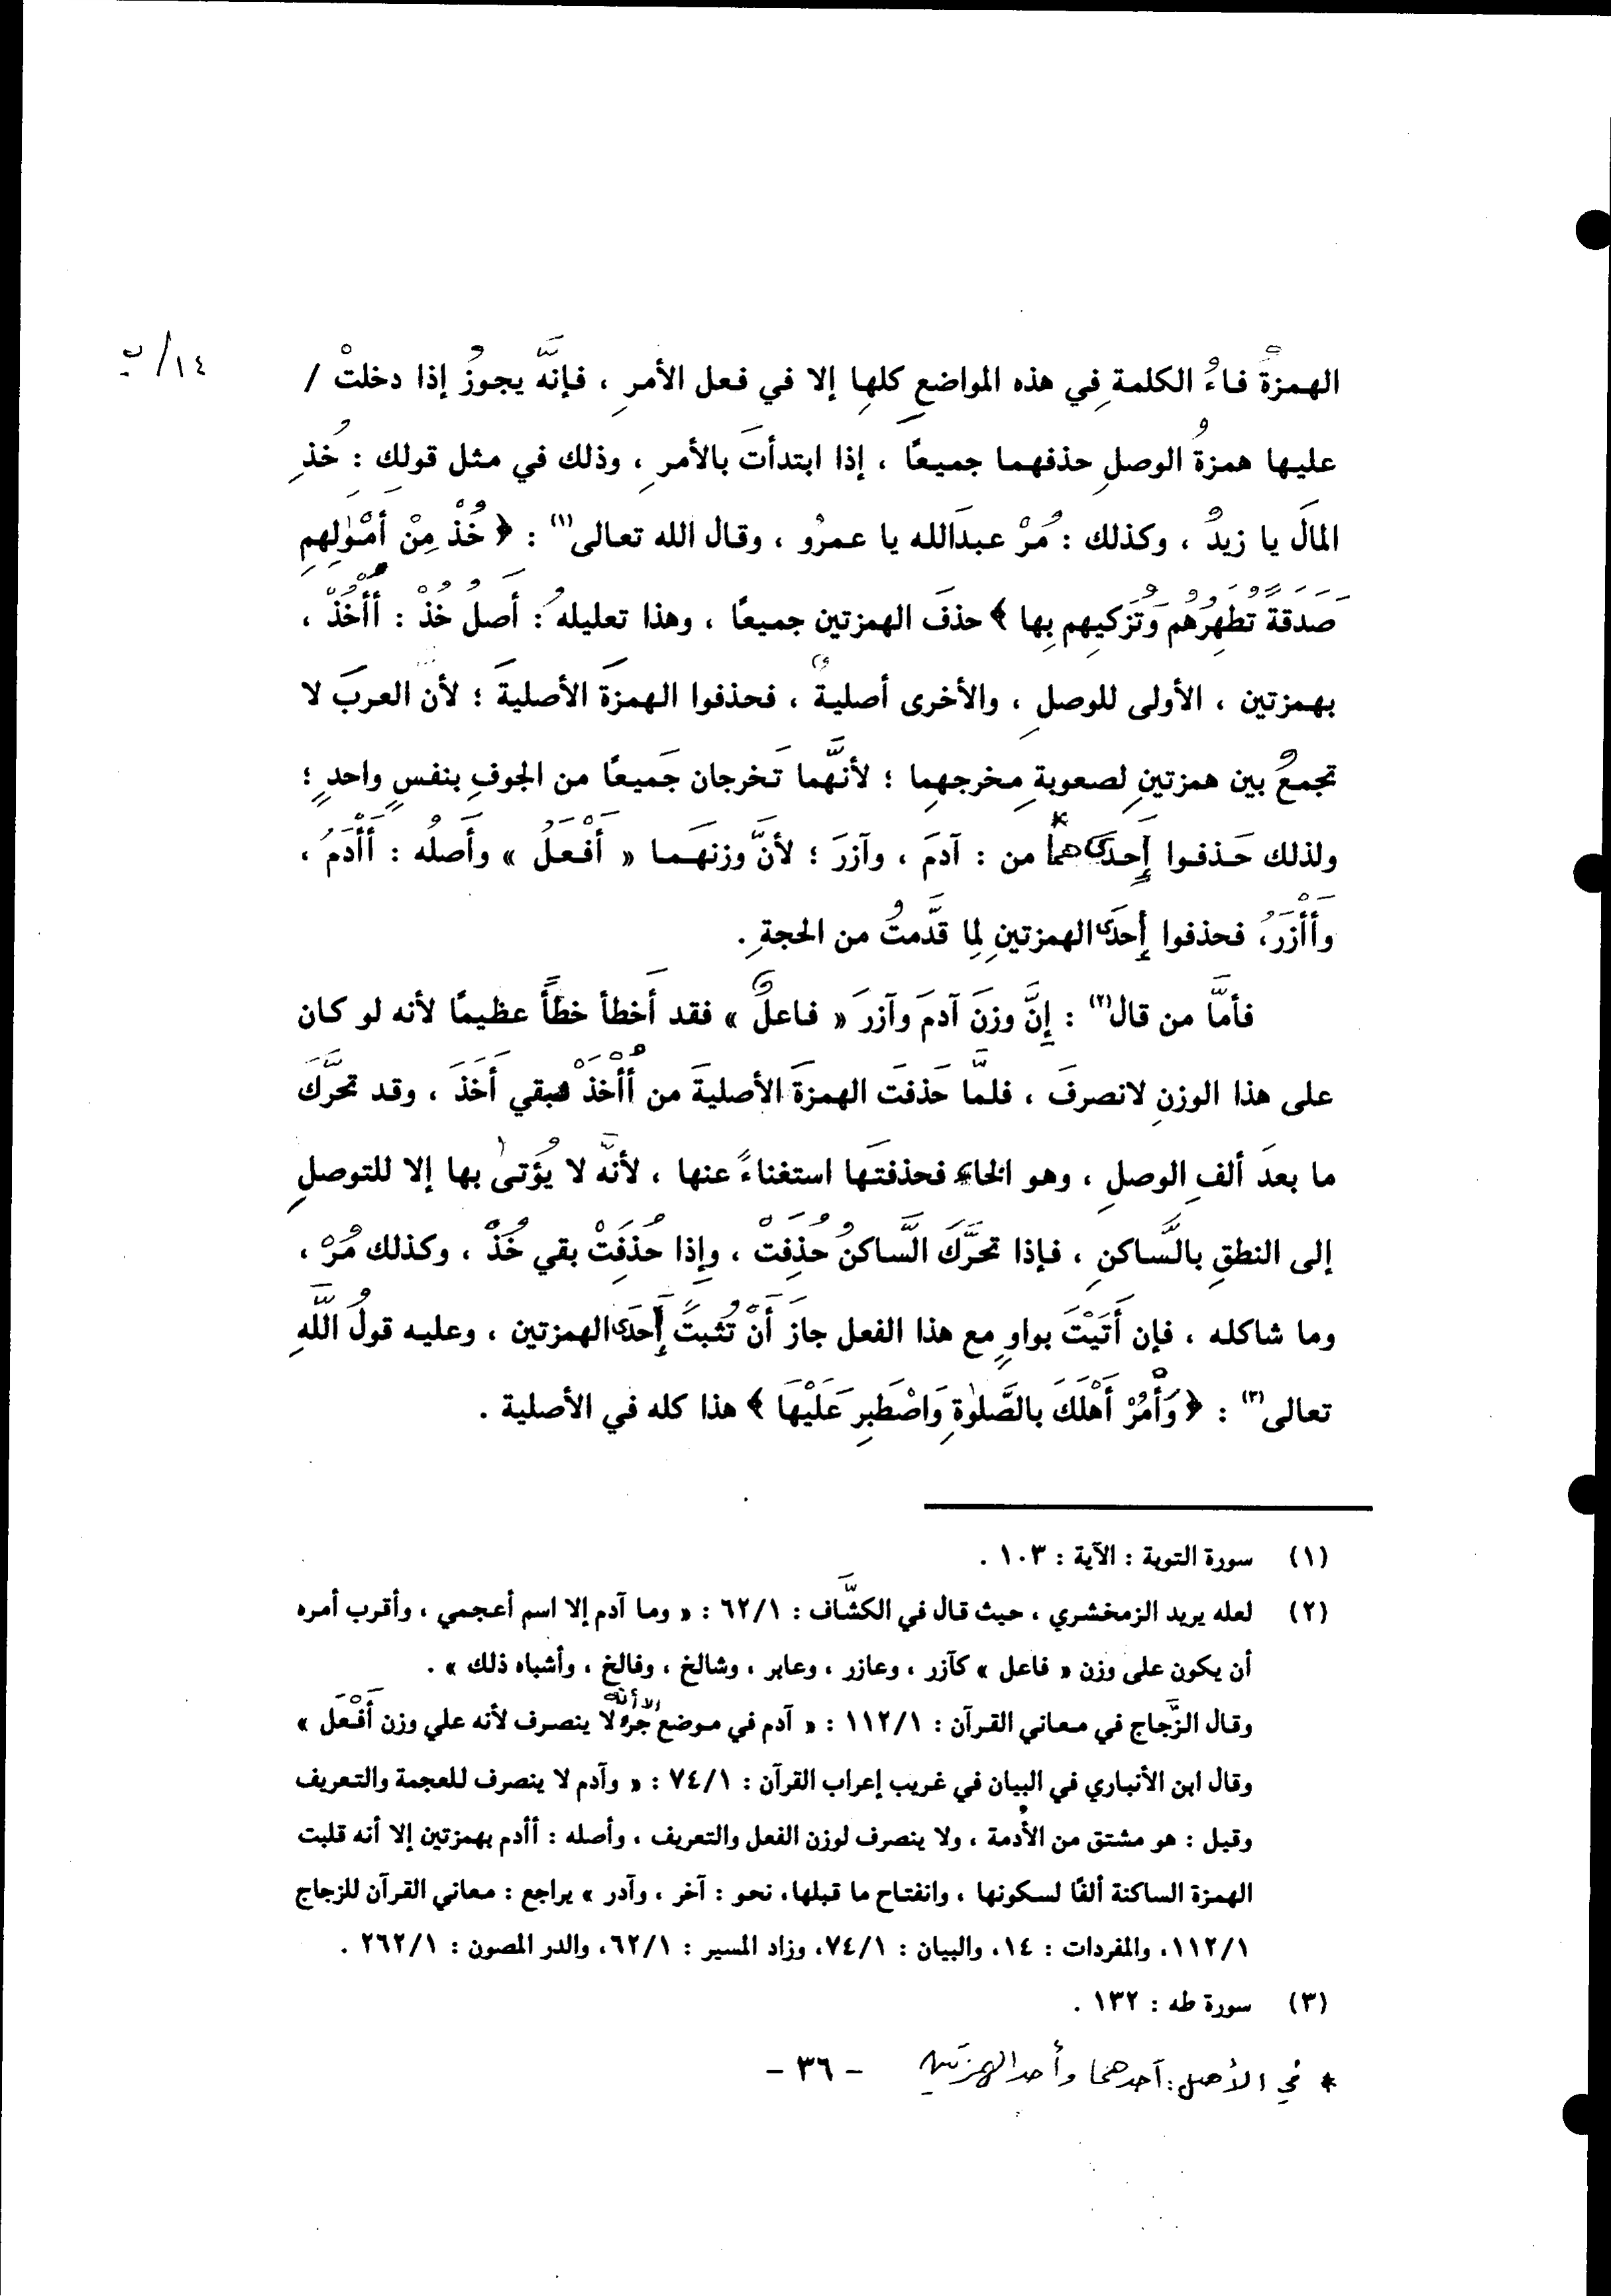 ١٤/ب
الهمزةُ فاءُ الكلمةِ في هذه المواضعِ كلها إلا في فعل الأمرِ ، فإنَّه يجوزُ إذا دخلتْ /
عليها همزةُ الوصلِ حذفهما جميعًا ، إذا ابتدأتَ بالأمرِ ، وذلك في مثل قولك : خُذِ
المالَ يا زيدُ ، وكذلك : مُرْ عبدَالله يا عمرُو ، وقال الله تعالى(١) : ﴿ خُذْ مِنْ أَمْوَٰلِهِمِ
صَدَقَةً تُطَهِّرُهُم وَتُزَكِّيهِم بِها ﴾ حذفَ الهمزتين جميعًا ، وهذا تعليلهُ : أَصلُ خُذْ : أُأْخُذْ ،
بهمزتين ، الأولى للوصلِ ، والأخرى أصليةٌ ، فحذفوا الهمزةَ الأصليةَ ؛ لأن العربَ لا
تجمعُ بين همزتينِ لصعوبةِ مخرجهِما ؛ لأنَّهما تَخرجان جَميعًا من الجوفِ بنفسٍ واحدٍ ؛
ولذلك حَذفوا إِحدَىهما* من : آدمَ ، وآزرَ ؛ لأنَّ وزنهَما « أَفْعَلُ » وأَصلُه : أَأْدَمُ ،
وأَأْزَرُ، فحذفوا إِحدَى الهمزتينِ لِما قدَّمتُ من الحجةِ .
فأمَّا من قال(٢) : إِنَّ وزنَ آدمَ وآزرَ « فاعلٌ » فقد أَخطأ خطأً عظيمًا لأنه لو كان
على هذا الوزنِ لانصرفَ ، فلمَّا حَذفتَ الهمزةَ الأصليةَ من أُأْخُذْ فبقي أَخذَ ، وقد تحَرَّكَ
ما بعدَ ألفِ الوصلِ ، وهو الخاء فحذفتَها استغناءً عنها ، لأنَّه لا يُؤتىٰ بها إلا للتوصلِ
إلى النطقِ بالسَّاكنِ ، فإذا تحَرَّكَ السَّاكنُ حُذِفَتْ ، وإِذا حُذِفَتْ بقي خُذْ ، وكذلك مُرْ ،
وما شاكله ، فإن أَتَيْتَ بواوٍ مع هذا الفعل جازَ أَنْ تُثبتَ إِحدَى الهمزتين ، وعليه قولُ اللَّهِ
تعالى(٣) : ﴿ وَأْمُرْ أَهْلَكَ بالصَّلَوٰةِ وَاصْطَبِرْ عَلَيْهَا ﴾ هذا كله في الأصلية .
(١) سورة التوبة : الآية : ١٠٣ .
(٢) لعله يريد الزمخشري ، حيث قال في الكشَّاف : ٦٢/١ : « وما آدم إلا اسم أعجمي ، وأقرب أمره
أن يكون على وزن « فاعل » كآزر ، وعازر ، وعابر ، وشالخ ، وفالخ ، وأشباه ذلك » .
وقال الزَّجاج في معاني القرآن : ١١٢/١ : « آدم في موضع جر إلا أنه لا ينصرف لأنه علي وزن أَفْعَل »
وقال ابن الأنباري في البيان في غريب إعراب القرآن : ٧٤/١ : « وآدم لا ينصرف للعجمة والتعريف
وقيل : هو مشتق من الأُدمة ، ولا ينصرف لوزن الفعل والتعريف ، وأصله : أأدم بهمزتين إلا أنه قلبت
الهمزة الساكنة ألفًا لسكونها ، وانفتاح ما قبلها، نحو : آخر ، وآدر » يراجع : معاني القرآن للزجاج
١١٢/١، والمفردات : ١٤، والبيان : ٧٤/١، وزاد المسير : ٦٢/١، والدر المصون : ٢٦٢/١ .
(٣) سورة طه : ١٣٢ .
* في الأصل : أحدهما وأحد الهمزتين
- ٣٦ -